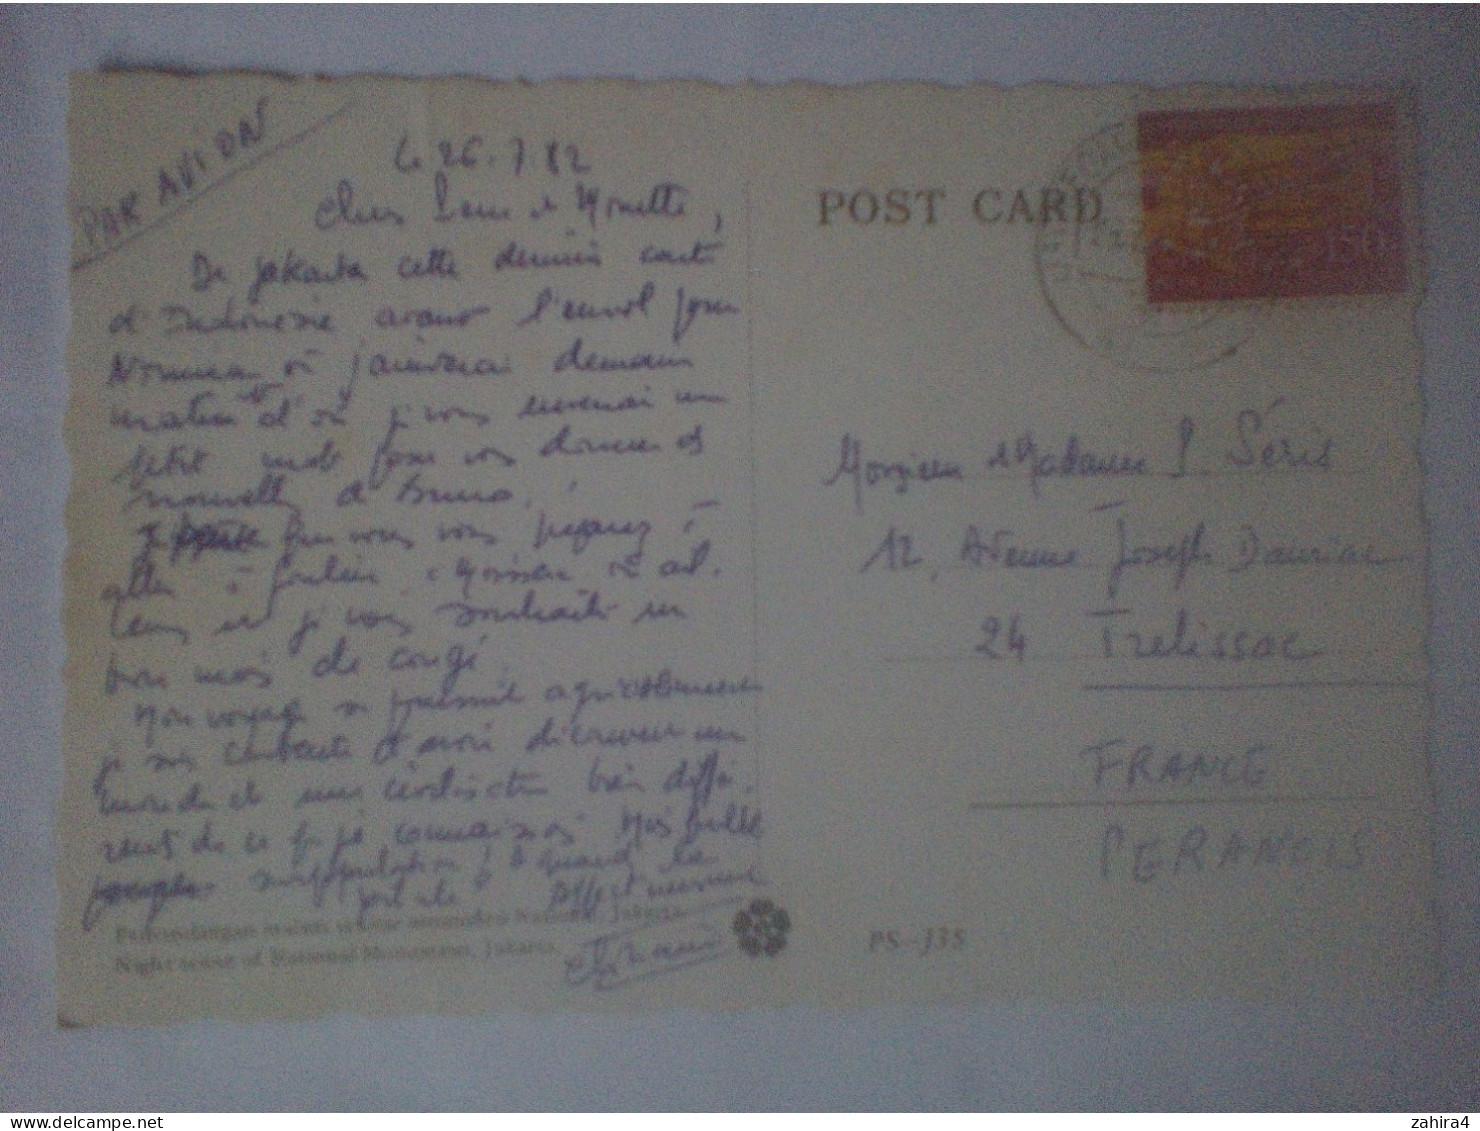 PAR AVION
Le 26.7.82
Chers et Monette,
De Jakarta cette dernière carte
d'Indonésie avant l'envol pour
Nouméa où j'arriverai demain
matin et d'où j vous enverrai un
petit mot pour vous donner des
nouvelles de Bruno.
que vous vous préparez à
aller à ou ail-
leurs et je vous souhaite un
bon mois de congé.
Mon voyage se poursuit agréablement
je suis contente d'avoir découvert un
monde et une civilisation bien diffé-
rents de ce que je connaissais. Mais quelle
surpopulation ! à quand la
Affectueusement
Pemandangan malam sekitar monumen Nasional, Jakarta.
Night scene of National Monument, Jakarta.
POST CARD
150
Monsieur et Madame P. Séris
12, Avenue Joseph Dauriac
24 Trelissac
FRANCE
PERANCIS
PS-J35
delcampe.net
zahira4